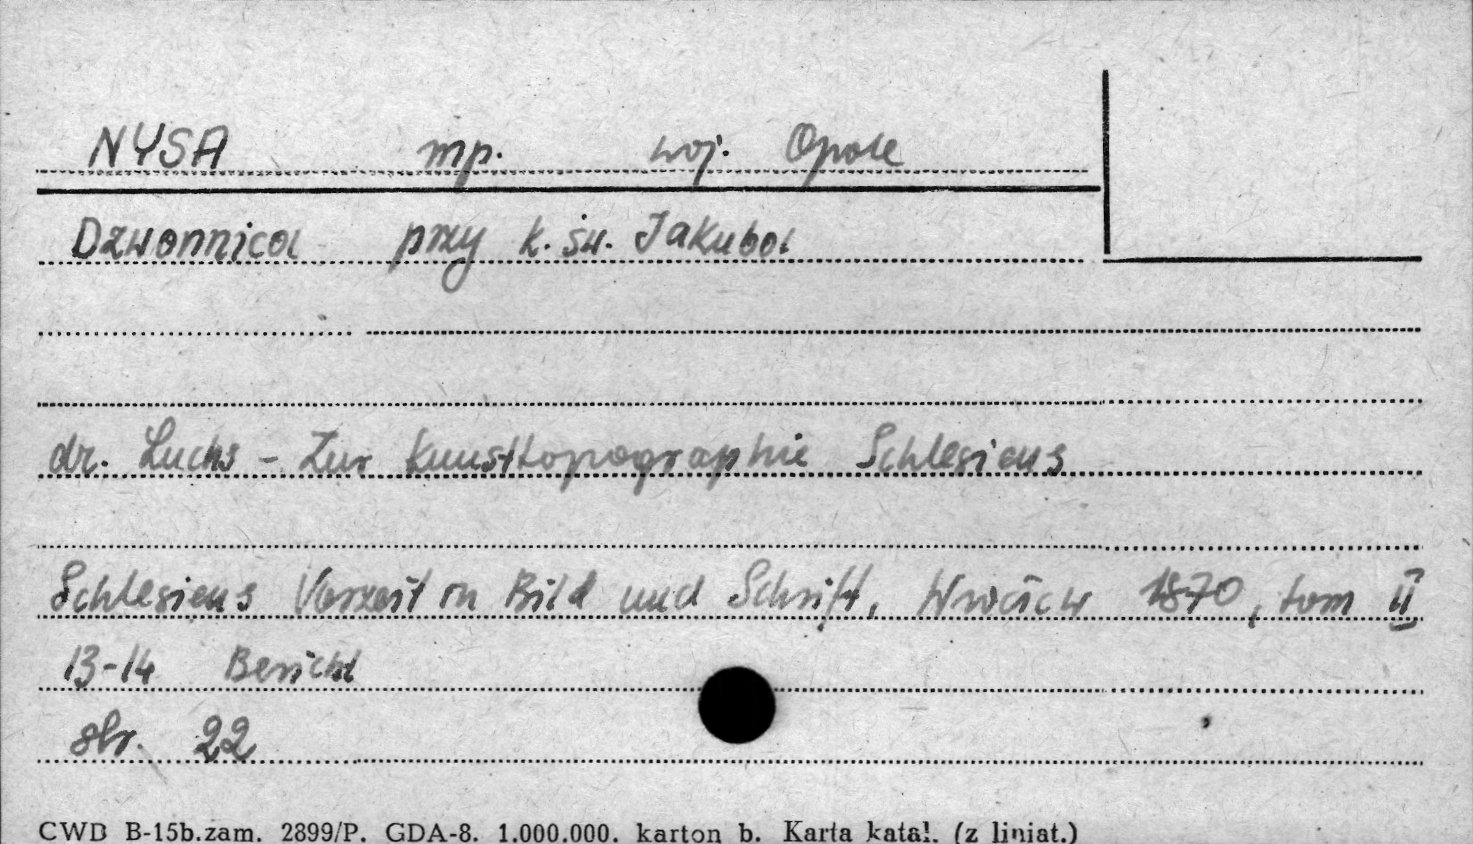 NYSA mp. woj. Opole
Dzwonnica przy k. św. Jakuba
dr. Luchs - Zur Kunsttopographie Schlesiens
Schlesiens Vorzeit in Bild und Schrift, Wrocław 1870, tom II
13-14 Bericht
str. 22
CWD B-15b.zam. 2899/P. GDA-8. 1.000.000. karton b. Karta katal. (z liniat.)